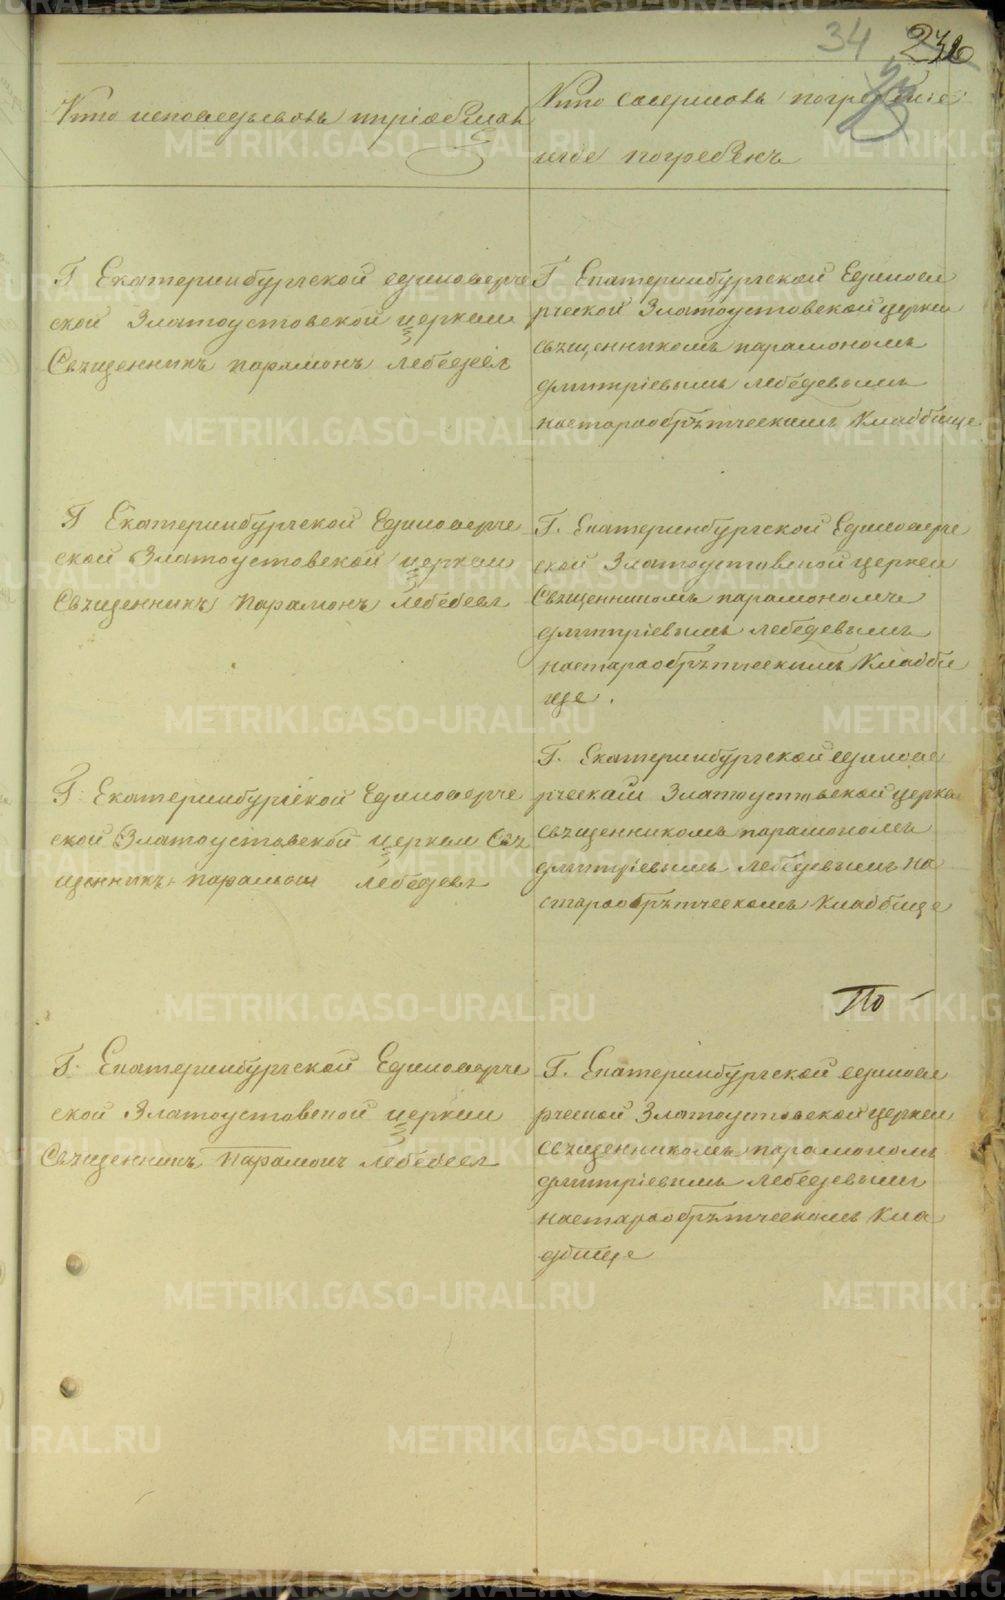 34 236
Кто исповедывовъ ипріобщалъ
Кто совершовъ погребеніе
игде погребенъ
Г Екатеринбургской единоверче
ской Златоустовской церкви
Священникъ парамонъ лебедевъ
Г Екатеринбургской Единове
рческой Златоустовской церкви
священникомъ парамономъ
дмитріевымъ лебедевымъ
настарообрѣтческимъ Кладбище
Г Екатеринбургской Единоверче
ской Златоустовской церкви
Священникъ Парамонъ лебедевъ
Г. Екатеринбургской Единоверче
ской Златоустовской церкви
Священникомъ парамономъ
дмитріевымъ лебедевымъ
настарообрѣтческимъ Кладби
ще.
Г Екатеринбургской Единоверче
ской Златоустовской церкви Свя
щенникъ парамон лебедевъ
Г. Екатеринбургской единове
рческой Златоустовской церкви
священникомъ парамономъ
дмитріевымъ лебедевымъ на
старообрѣтческомъ Кладбище
По
Г. Екатеринбургской Единоверче
ской Златоустовской церкви
Священникъ Парамонъ лебедевъ
Г. Екатеринбургской единове
рческой Златоустовской церкви
священникомъ парамономъ
дмитріевымъ лебедевымъ
настарообрѣтческомъ Кла
дбище
METRIKI.GASO-URAL.RU